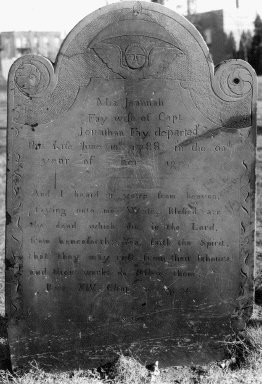 Joannah
Fay wife of Capt.
Jonathan Fay departed
this Life June 1788 in the
year of her age
And I heard a voice from heaven,
saying unto me, Write, Blessed are
the dead which die in the Lord,
from henceforth, Yea, saith the Spirit,
that they may rest from their labours,
and their works do follow them.
Chap